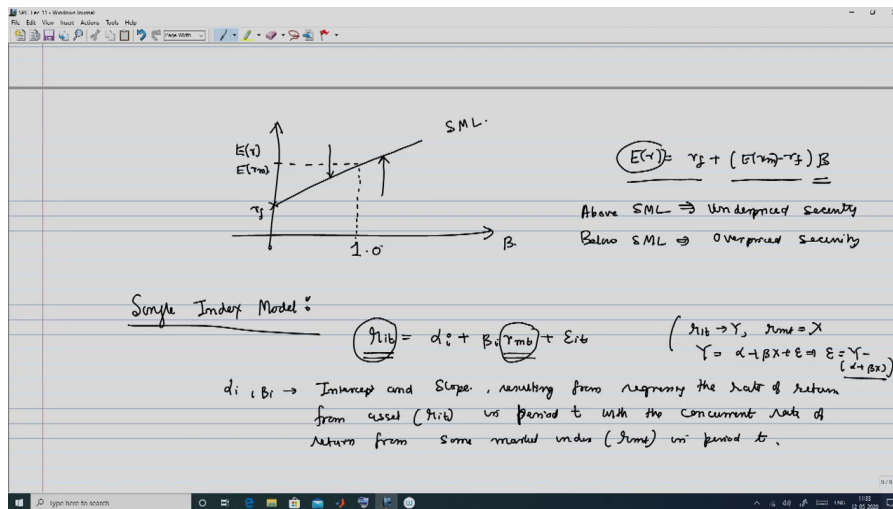 SPC Lec 11 - Windows Journal
File Edit View Insert Actions Tools Help
Page Width
SML.
E(r)
E(rm)
rf
1.0
β.
E(r) = rf + (E(rm)-rf) β
Above SML ⇒ Underpriced security
Below SML ⇒ Overpriced security
Single Index Model:
rit = αi + βi rmt + εit
( rit → Y, rmt = X
Y = α+βX+ε ⇒ ε = Y-
(α+βX)
αi, βi → Intercept and Slope, resulting from regressing the rate of return
from asset (rit) in period t with the concurrent rate of
return from some market index (rmt) in period t.
9/9
Type here to search
ENG
11:33
12-05-2020